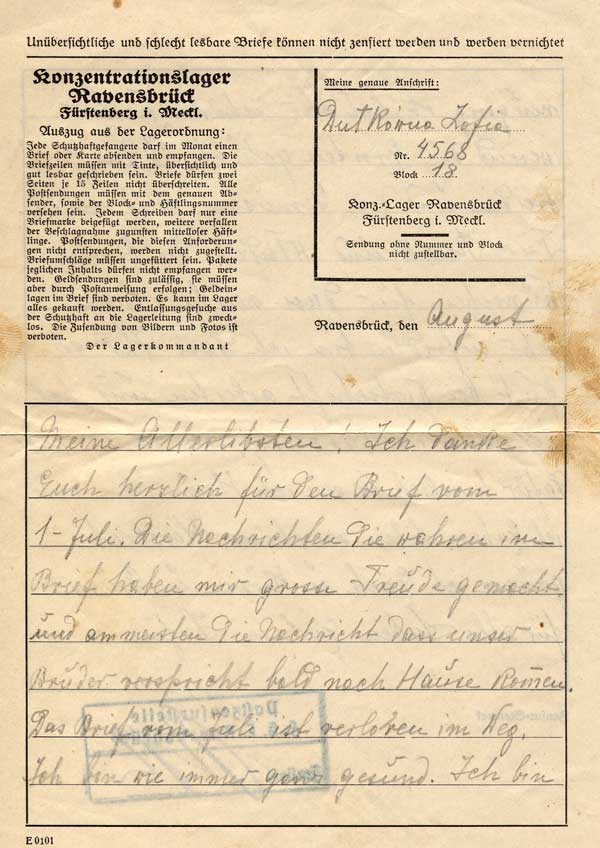 Unübersichtliche und schlecht lesbare Briefe können nicht zensiert werden und werden vernichtet
Konzentrationslager
Ravensbrück
Fürstenberg i. Meckl.
Auszug aus der Lagerordnung:
Jede Schutzhaftgefangene darf im Monat einen
Brief oder Karte absenden und empfangen. Die
Briefzeilen müssen mit Tinte, übersichtlich und
gut lesbar geschrieben sein. Briefe dürfen zwei
Seiten je 15 Zeilen nicht überschreiten. Alle
Postsendungen müssen mit dem genauen Ab-
sender, sowie der Block- und Häftlingsnummer
versehen sein. Jedem Schreiben darf nur eine
Briefmarke beigefügt werden, weitere verfallen
der Beschlagnahme zugunsten mittelloser Häft-
linge. Postsendungen, die diesen Anforderun-
gen nicht entsprechen, werden nicht zugestellt.
Briefumschläge müssen ungefüttert sein. Pakete
jeglichen Inhalts dürfen nicht empfangen wer-
den. Geldsendungen sind zulässig, sie müssen
aber durch Postanweisung erfolgen; Geldein-
lagen im Brief sind verboten. Es kann im Lager
alles gekauft werden. Entlassungsgesuche aus
der Schutzhaft an die Lagerleitung sind zweck-
los. Die Zusendung von Bildern und Fotos ist
verboten.
Der Lagerkommandant
Meine genaue Anschrift:
Dutkówna Zofia
Nr. 4568
Block 18
Konz.-Lager Ravensbrück
Fürstenberg i. Meckl.
Sendung ohne Nummer und Block
nicht zustellbar.
Ravensbrück, den August
Meine Allerlibsten! Ich danke
Euch herzlich für den Brief vom
1-Juli. Die Nachrichten die wahren im
Brief haben mir grosse Freude gemacht
und ammeisten die Nachricht dass unser
Bruder verspricht bald nach Hause komen.
Das Brief vom Juli ist verloren im Weg.
Ich bin wie immer ganz gesund. Ich bin
Postzensurstelle
E 0101